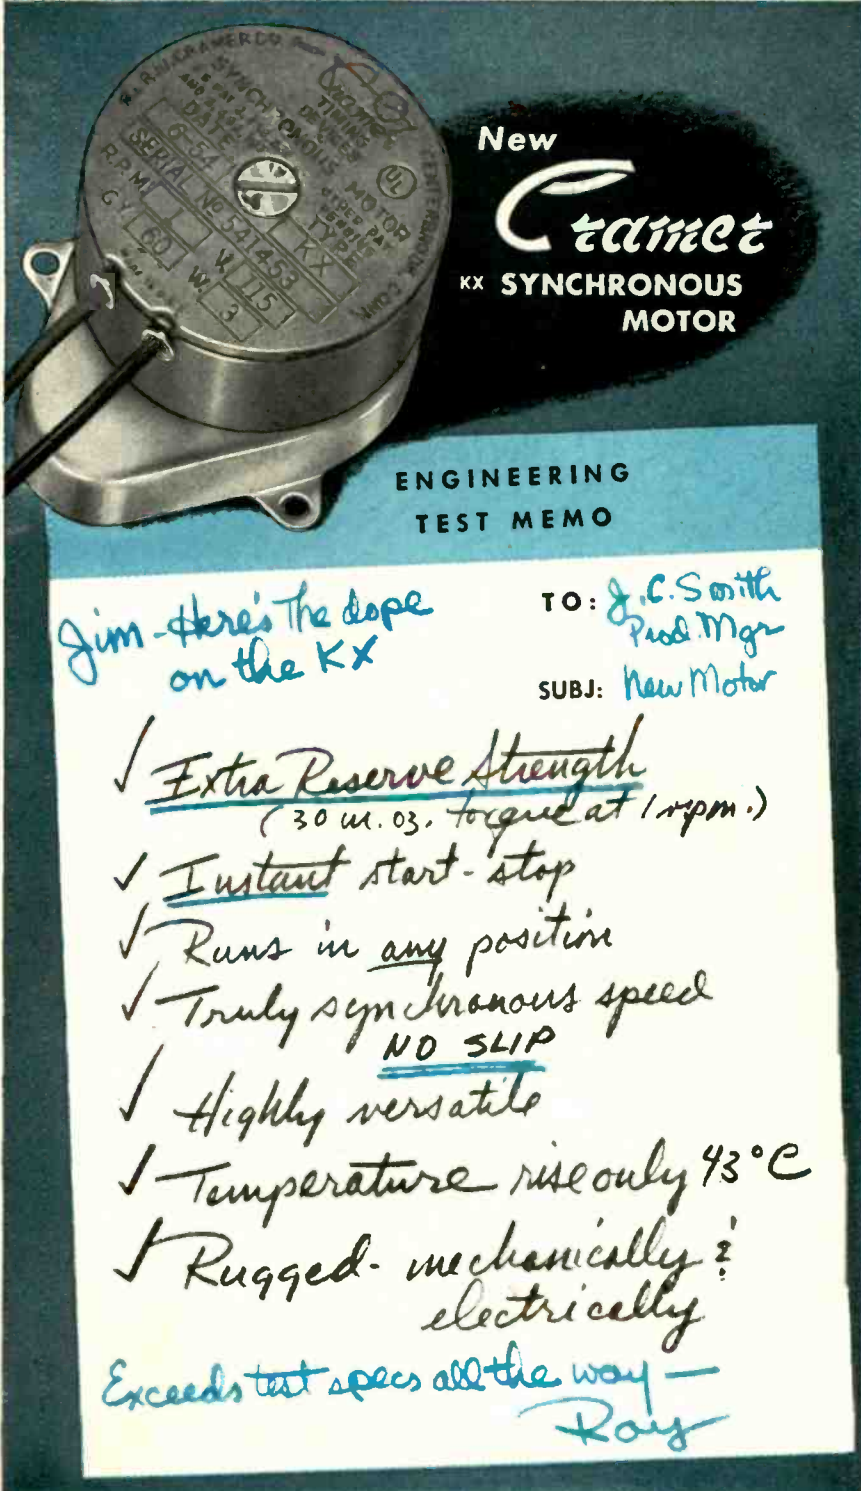 R.W. CRAMER CO.
Cramer
TIMING
DEVICES
SYNCHRONOUS MOTOR
UL
DATE 6-54
TYPE KX
SERIAL Nº 541453
R.P.M. 1
V. 115
CY. 60
W. 3
CENTERBROOK, CONN.
New
Cramer
KX SYNCHRONOUS
MOTOR
ENGINEERING
TEST MEMO
Jim - Here's the dope
on the KX
TO: J. C. Smith
Prod. Mgr
SUBJ: New Motor
✓ Extra Reserve Strength
(30 in. oz. torque at 1 rpm.)
✓ Instant start-stop
✓ Runs in any position
✓ Truly synchronous speed
NO SLIP
✓ Highly versatile
✓ Temperature rise only 43°C
✓ Rugged - mechanically &
electrically
Exceeds test specs all the way —
Roy